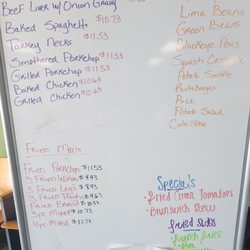 Beef Liver w/ Onion Gravy
Baked Spaghetti $10.73
Turkey Necks $11.53
Smothered Porkchop $11.53
Grilled Porkchop $11.53
Baked Chicken $10.63
Grilled Chicken $10.63
Lima Beans
Green Beans
Blackeye Peas
Squash Casserole
Potato Souffle
Rutabagas
Rice
Potato Salad
Cole Slaw
Fried Meats
Fried Porkchop $11.53
3 Fried Wings $9.93
3 Fried Legs $9.93
Fried Breast
3pc Mixed $10.73
4pc Mixed $12.73
Special's
Fried Green Tomatoes
Brunswick Stew
Fried Sides
French Fries